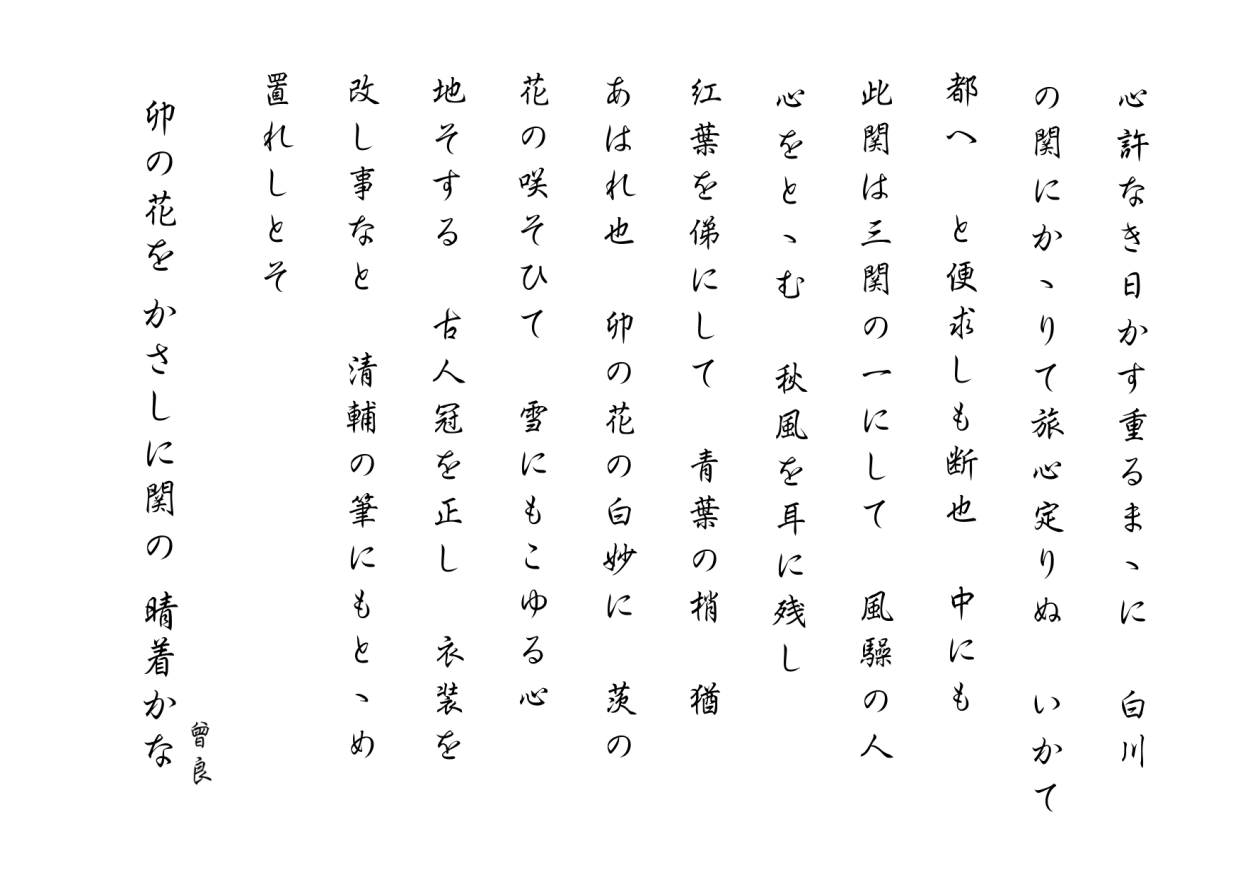 心許なき日かす重るまゝに　白川
の関にかゝりて旅心定りぬ　いかて
都へ　と便求しも断也　中にも
此関は三関の一にして　風騒の人
心をとゝむ　秋風を耳に残し
紅葉を俤にして　青葉の梢　猶
あはれ也　卯の花の白妙に　茨の
花の咲そひて　雪にもこゆる心
地そする　古人冠を正し　衣装を
改し事なと　清輔の筆にもとゝめ
置れしとそ
卯の花を かさしに関の 晴着かな
曾良